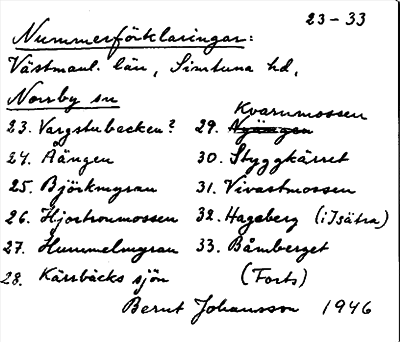 23-33
Nummerförklaringar:
Västmanl. län, Simtuna hd,
Norrby sn
23. Vargstubacken? 29. Nyängen Kvarnmossen
24. Åängen 30. Styggkärret
25. Björkmyran 31. Vivastmossen
26. Hjortronmossen 32. Hageberg (i Isätra)
27. Hummelmyran 33. Båmberget
28. Kärrbäcks sjön (Forts)
Bernt Johansson 1946